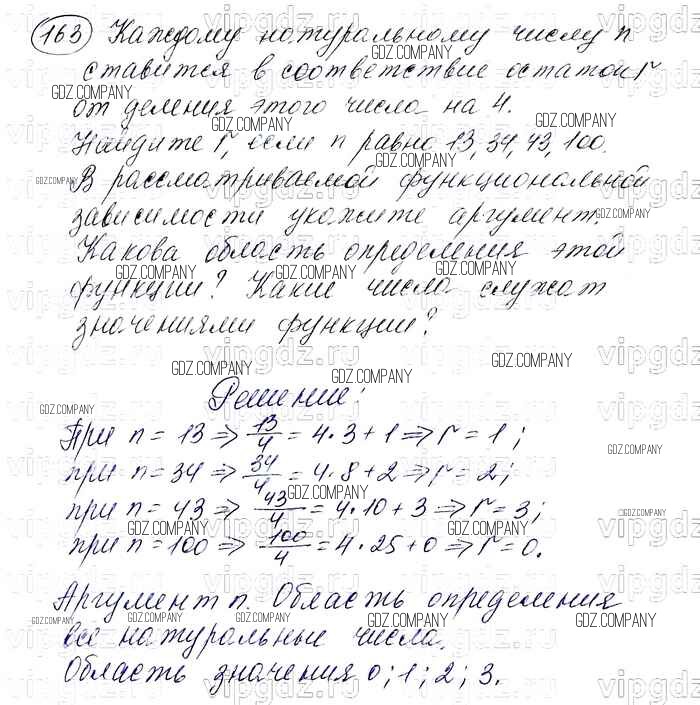 163 Каждому натуральному числу n
ставится в соответствие остаток r
от деления этого числа на 4.
Найдите r, если n равно 13, 34, 43, 100.
В рассматриваемой функциональной
зависимости укажите аргумент.
Какова область определения этой
функции? Какие числа служат
значениями функции?
Решение:
При n = 13 => 13/4 = 4·3+1 => r = 1;
при n = 34 => 34/4 = 4·8+2 => r = 2;
при n = 43 => 43/4 = 4·10+3 => r = 3;
при n = 100 => 100/4 = 4·25+0 => r = 0.
Аргумент n. Область определения
все натуральные числа.
Область значения 0; 1; 2; 3.